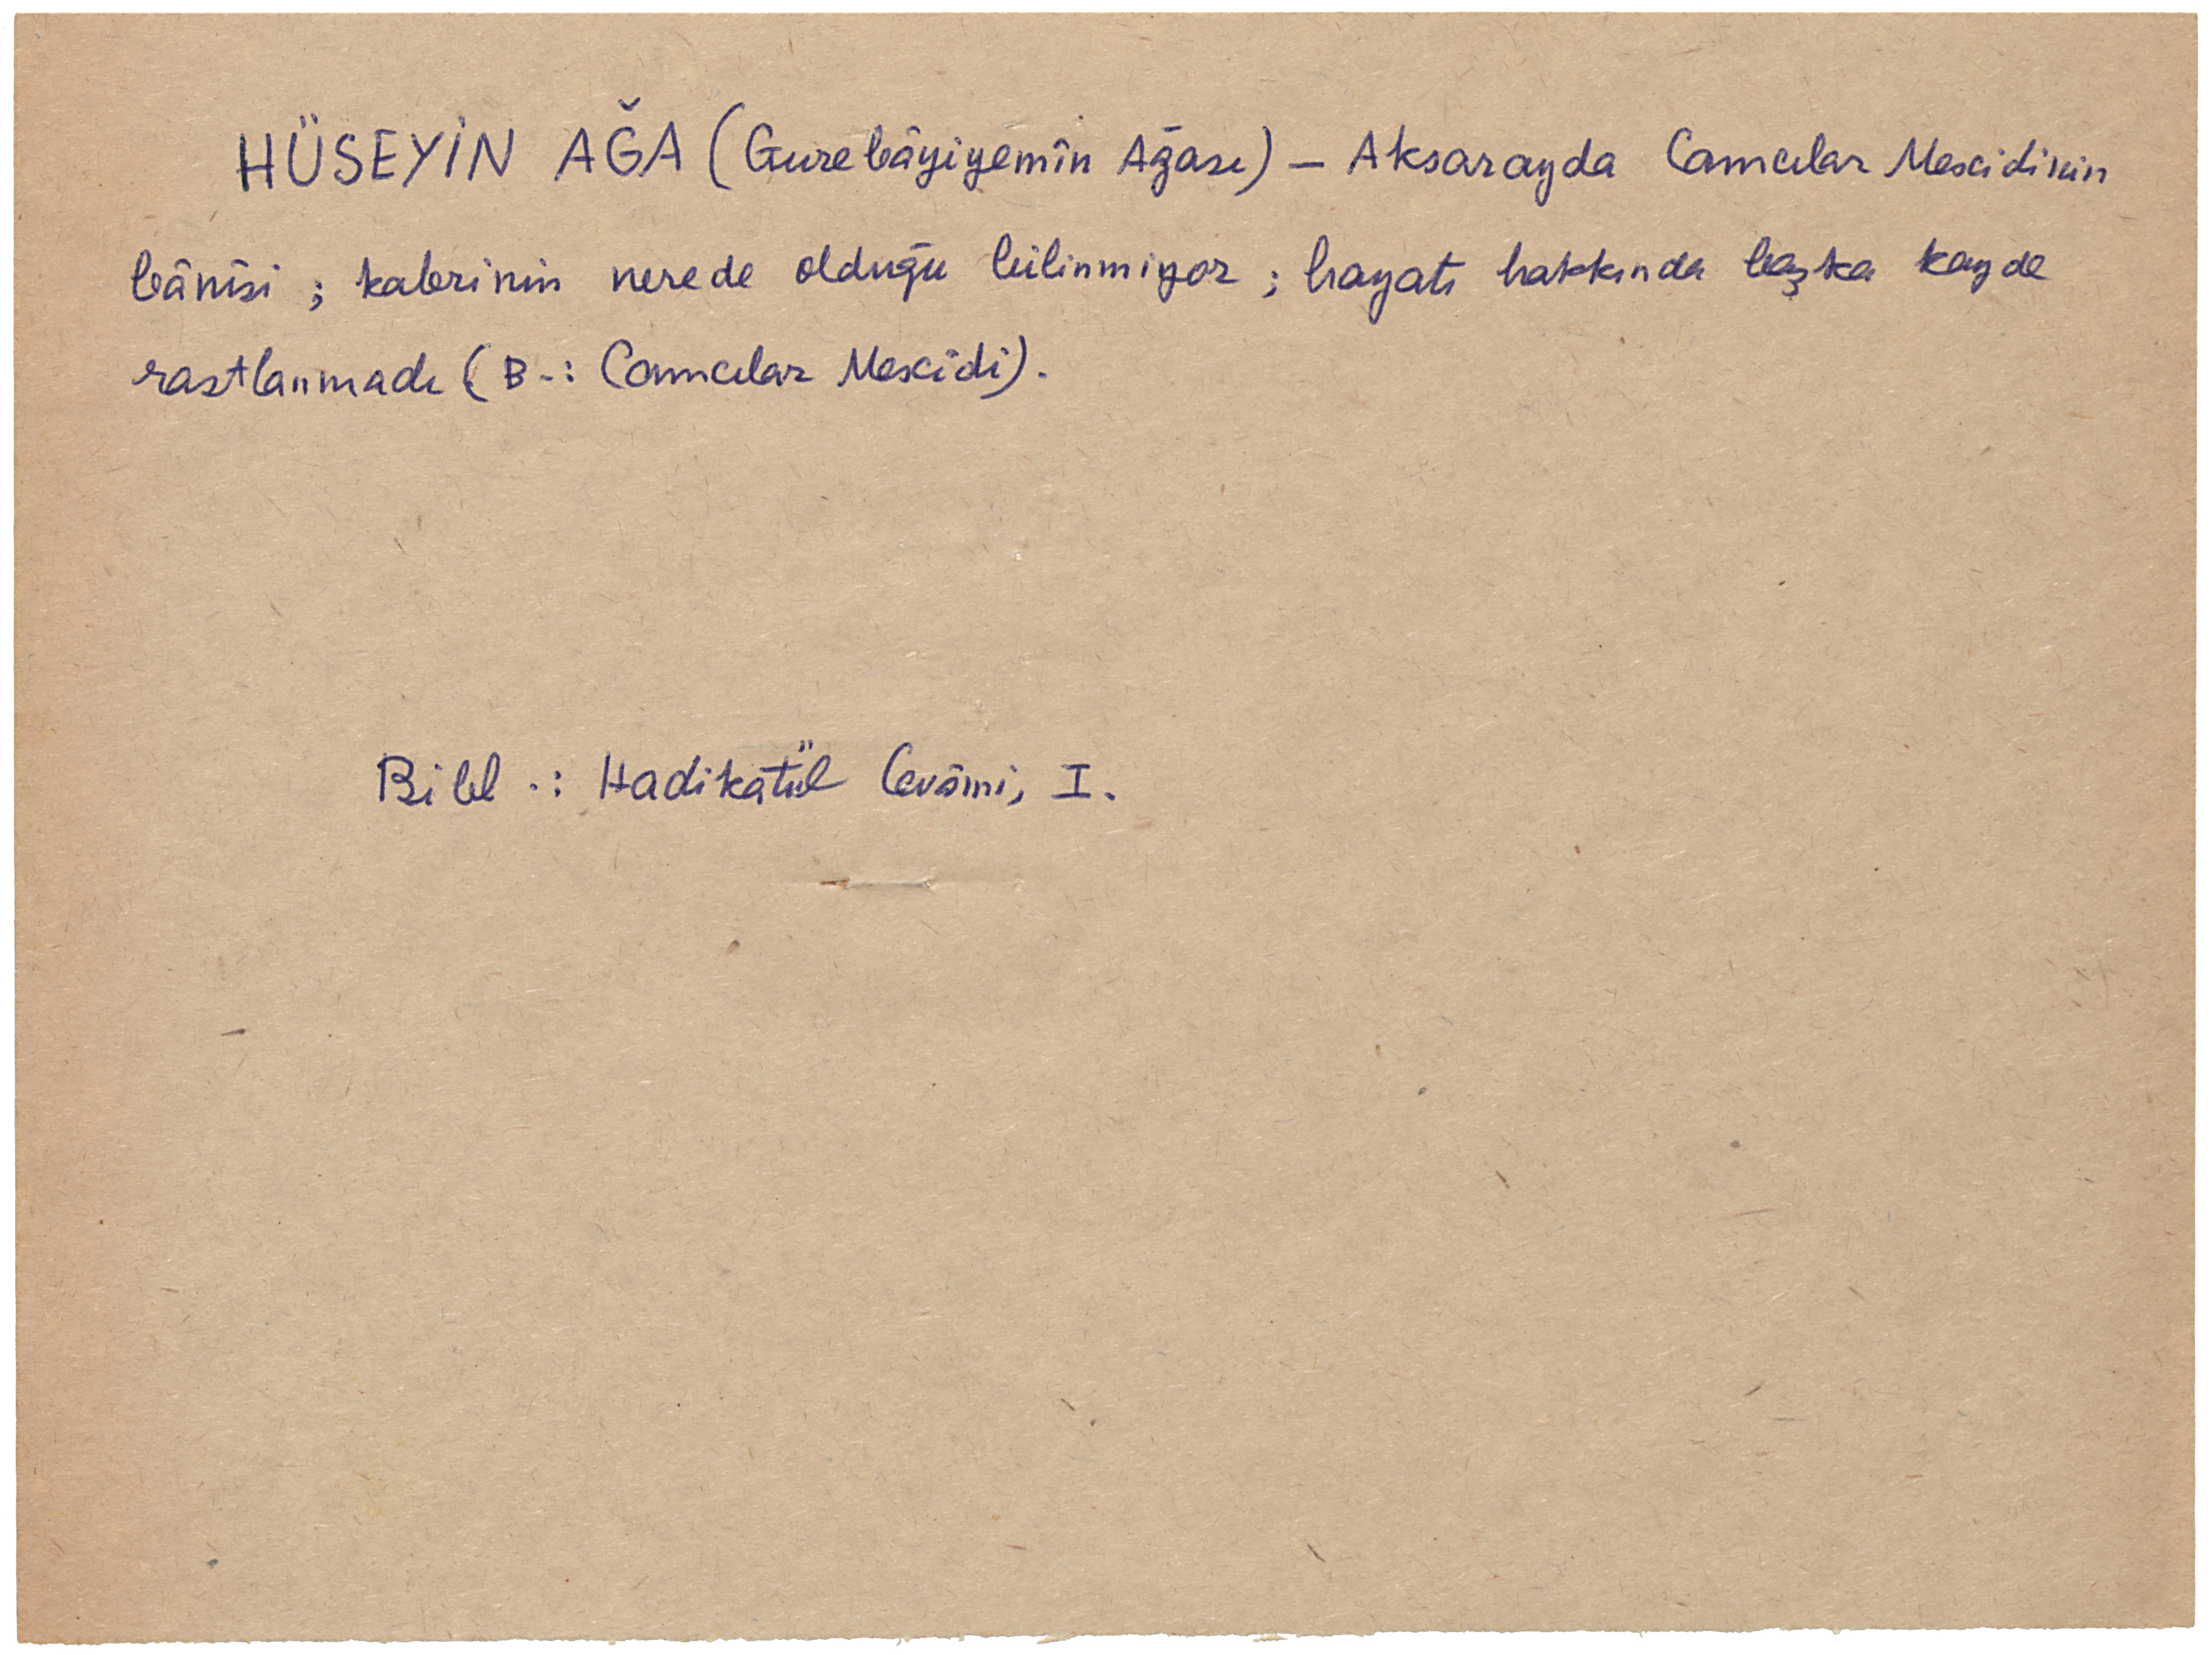 HÜSEYİN AĞA (Gurebâyiyemîn Ağası) — Aksarayda Camcılar Mescidinin
bânîsi ; kabrinin nerede olduğu bilinmiyor ; hayatı hakkında başka kayde
rastlanmadı (B.: Camcılar Mescidi).
Bibl.: Hadikatül Cevâmi, I.